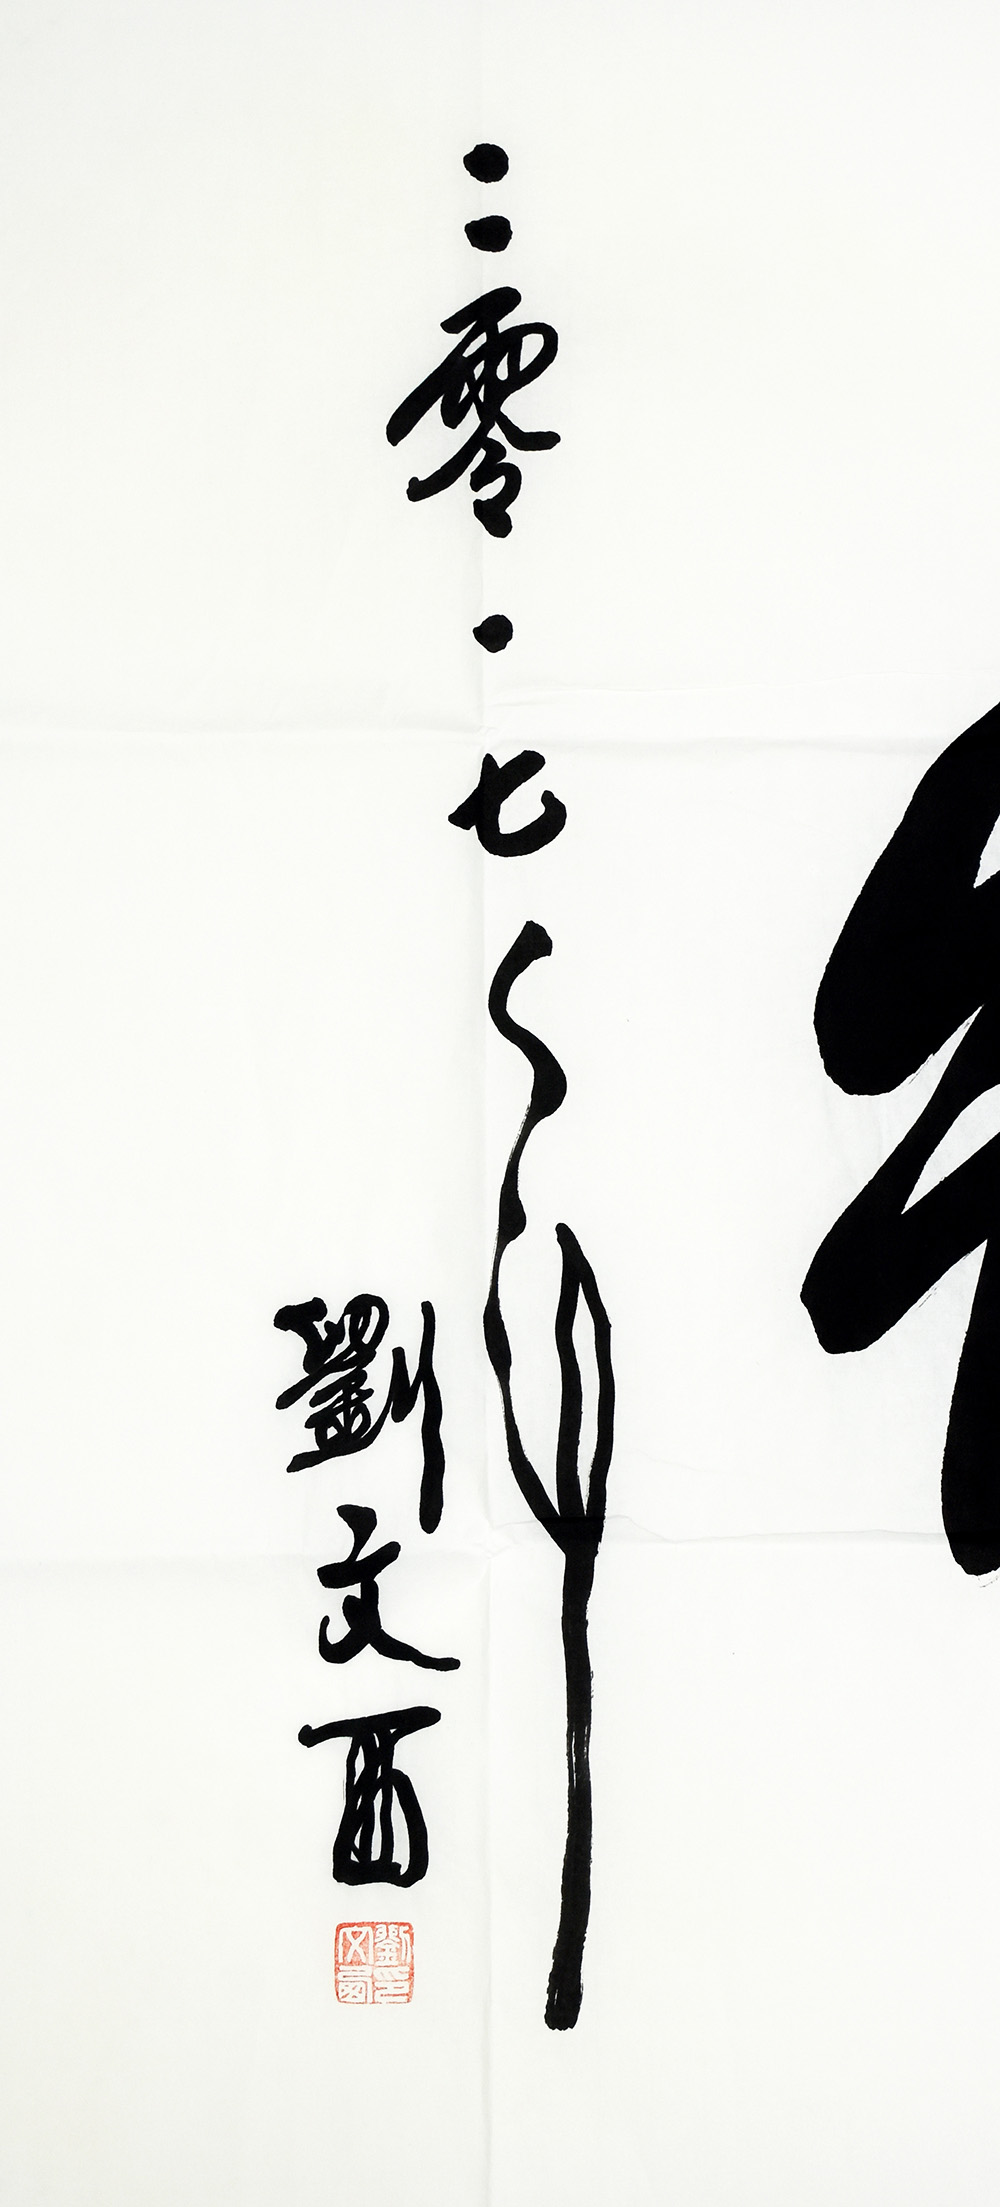 二零一七年
劉文西
劉印
文西